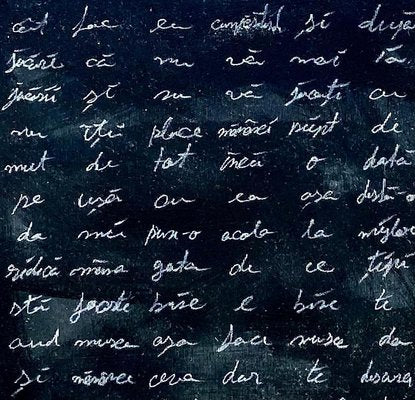 cât fac eu cumpărături și după
jucării că nu vă mai la
jucării și nu vă jucați cu
nu îți place mănânci piept de
mut de tot încă o dată
pe ușă cu ea așa dută-o
da măi pun-o acolo la mijloc
ridică mâna gata de ce țipi
stă foarte bine e bine te
aud muzea așa faci muzea da
și mănânci ceva dar te doare